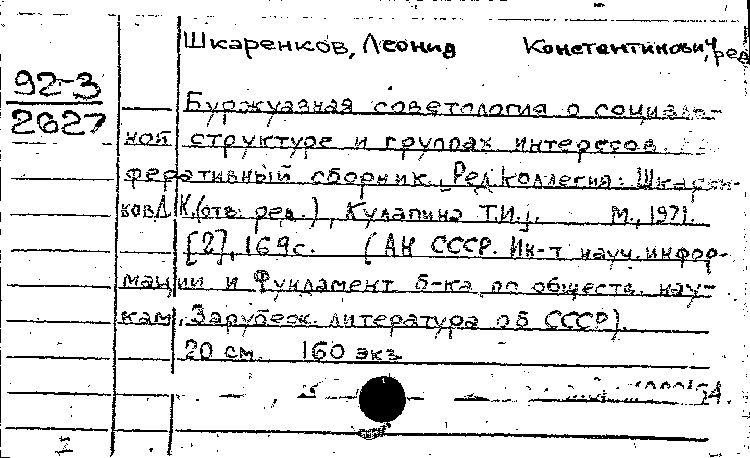 Шкаренков, Леонид Константинович, ред
92-3
2627
Буржуазная советология о социаль-
ной структуре и группах интересов.
феративный сборник. Ред коллегия: Шкарен-
ков Л.К. (отв. ред.), Кулапина Т.И.;. М., 1971.
[2], 169 с. (АН СССР. Ин-т науч. инфор-
мации и Фундамент б-ка по обществ. нау-
кам. Зарубеж. литература об СССР).
20 см. 160 экз
I